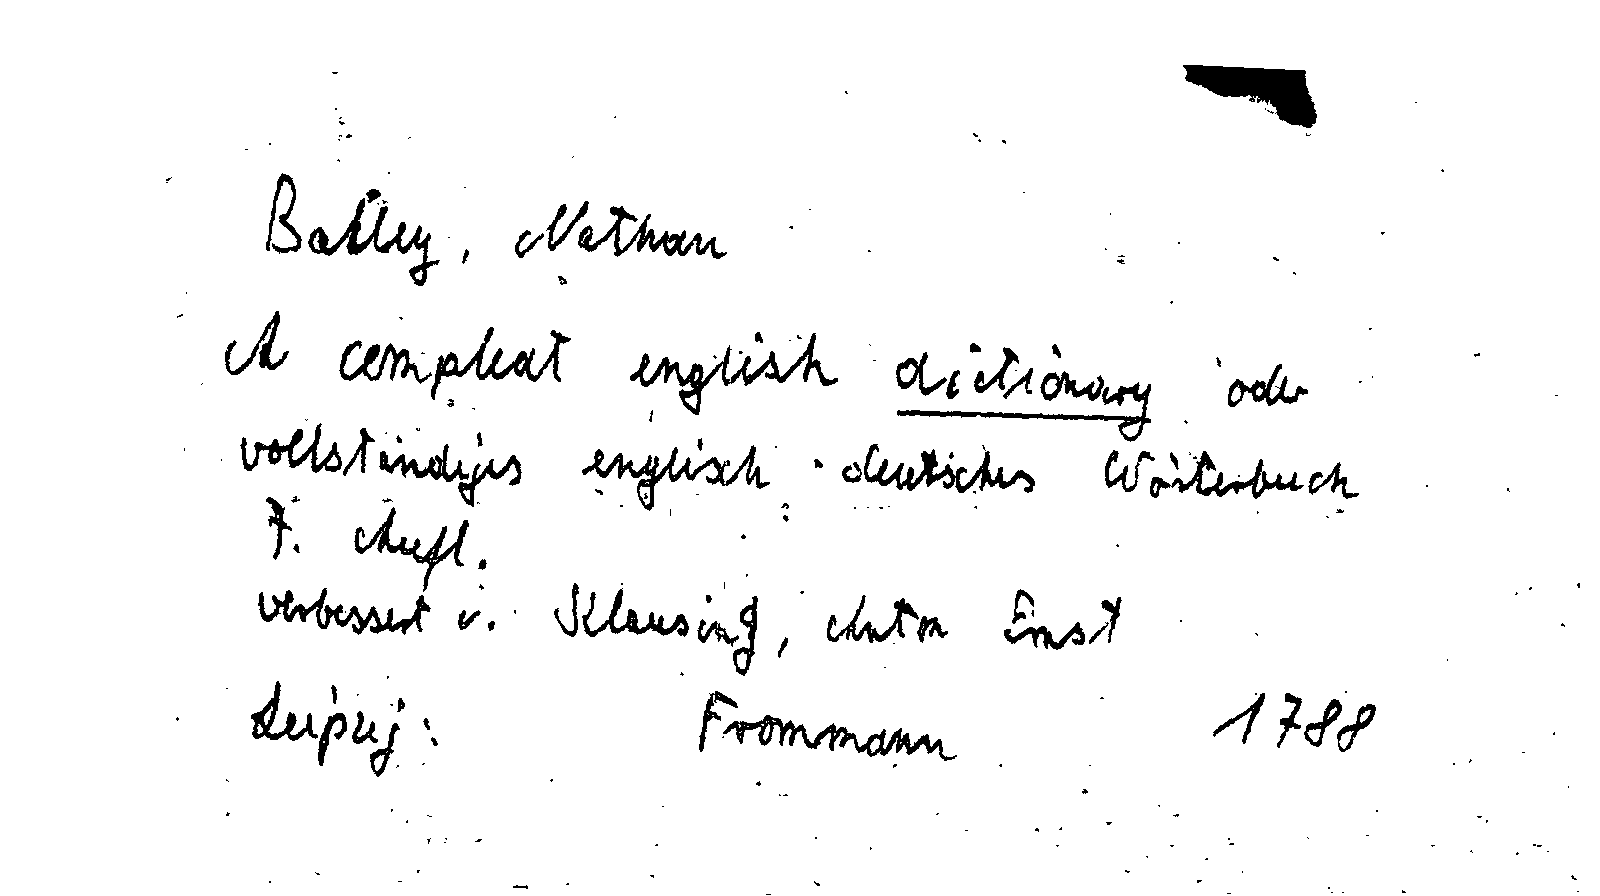 Bailey, Nathan
A compleat english dictionary oder
vollständiges englisch-deutsches Wörterbuch
7. Aufl.
verbessert v. Klausing, Anton Ernst
Leipzig: Frommann 1788